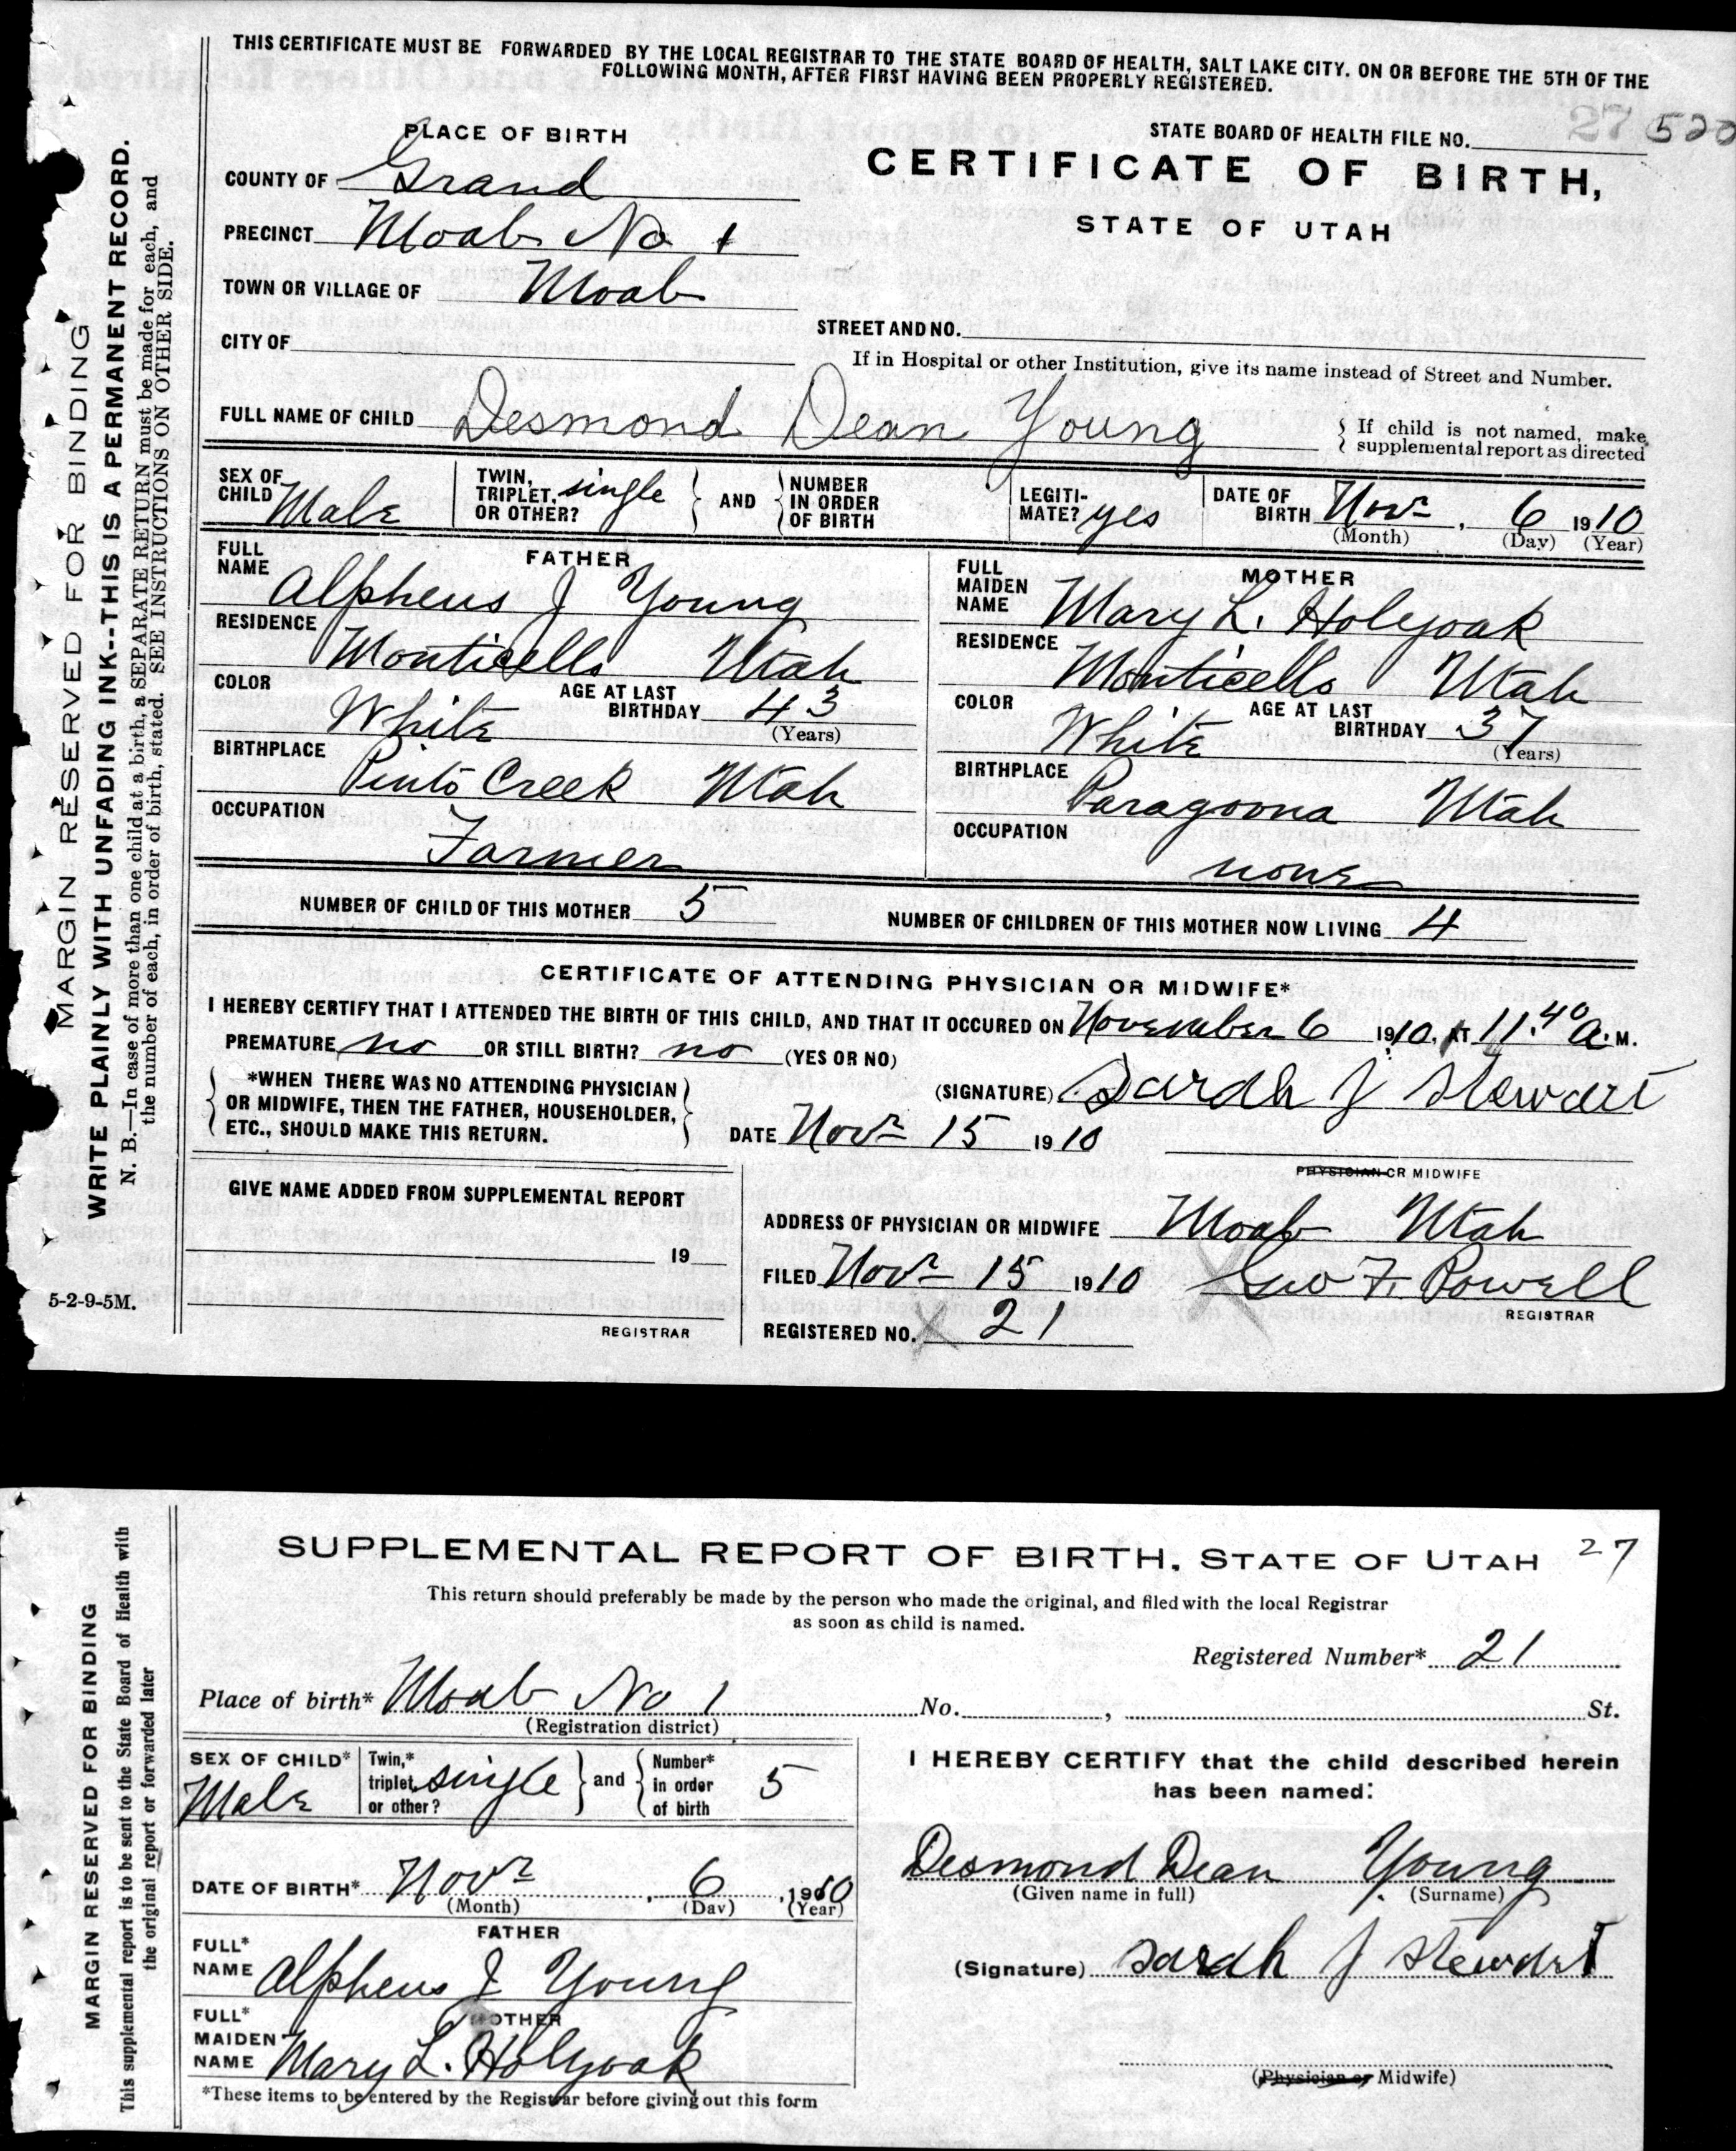 THIS CERTIFICATE MUST BE FORWARDED BY THE LOCAL REGISTRAR TO THE STATE BOARD OF HEALTH, SALT LAKE CITY. ON OR BEFORE THE 5TH OF THE
FOLLOWING MONTH, AFTER FIRST HAVING BEEN PROPERLY REGISTERED.
MARGIN RESERVED FOR BINDING
WRITE PLAINLY WITH UNFADING INK--THIS IS A PERMANENT RECORD.
N. B.—In case of more than one child at a birth, a SEPARATE RETURN must be made for each, and
the number of each, in order of birth, stated. SEE INSTRUCTIONS ON OTHER SIDE.
5-2-9-5M.
PLACE OF BIRTH
STATE BOARD OF HEALTH FILE NO. 27 520
COUNTY OF Grand
CERTIFICATE OF BIRTH,
PRECINCT Moab No 1
STATE OF UTAH
TOWN OR VILLAGE OF Moab
CITY OF
STREET AND NO.
If in Hospital or other Institution, give its name instead of Street and Number.
FULL NAME OF CHILD Desmond Dean Young
If child is not named, make
supplemental report as directed
SEX OF CHILD Male
TWIN, TRIPLET, OR OTHER? single
AND
NUMBER IN ORDER OF BIRTH
LEGITIMATE? yes
DATE OF BIRTH Novr 6 1910
(Month) (Day) (Year)
FATHER
FULL NAME Alpheus J Young
RESIDENCE Monticello Utah
COLOR White
AGE AT LAST BIRTHDAY 43
(Years)
BIRTHPLACE Pinto Creek Utah
OCCUPATION Farmer
MOTHER
FULL MAIDEN NAME Mary L. Holyoak
RESIDENCE Monticello Utah
COLOR White
AGE AT LAST BIRTHDAY 37
(Years)
BIRTHPLACE Paragoona Utah
OCCUPATION none
NUMBER OF CHILD OF THIS MOTHER 5
NUMBER OF CHILDREN OF THIS MOTHER NOW LIVING 4
CERTIFICATE OF ATTENDING PHYSICIAN OR MIDWIFE*
I HEREBY CERTIFY THAT I ATTENDED THE BIRTH OF THIS CHILD, AND THAT IT OCCURED ON November 6 1910, AT 11.40 A.M.
PREMATURE no OR STILL BIRTH? no (YES OR NO)
*WHEN THERE WAS NO ATTENDING PHYSICIAN
OR MIDWIFE, THEN THE FATHER, HOUSEHOLDER,
ETC., SHOULD MAKE THIS RETURN.
(SIGNATURE) Sarah J Stewart
DATE Novr 15 1910
PHYSICIAN OR MIDWIFE
GIVE NAME ADDED FROM SUPPLEMENTAL REPORT
19
REGISTRAR
ADDRESS OF PHYSICIAN OR MIDWIFE Moab Utah
FILED Novr 15 1910 Geo F. Powell
REGISTRAR
REGISTERED NO. 21
MARGIN RESERVED FOR BINDING
This supplemental report is to be sent to the State Board of Health with
the original report or forwarded later
SUPPLEMENTAL REPORT OF BIRTH, STATE OF UTAH 27
This return should preferably be made by the person who made the original, and filed with the local Registrar
as soon as child is named.
Registered Number* 21
Place of birth* Moab No 1 No. , St.
(Registration district)
SEX OF CHILD* Male
Twin,* triplet, or other? single
and
Number* in order of birth 5
DATE OF BIRTH* Novr 6 1910
(Month) (Day) (Year)
FATHER
FULL* NAME Alpheus J Young
MOTHER
FULL* MAIDEN NAME Mary L. Holyoak
*These items to be entered by the Registrar before giving out this form
I HEREBY CERTIFY that the child described herein
has been named:
Desmond Dean Young
(Given name in full) (Surname)
(Signature) Sarah J Stewart
(Physician or Midwife)